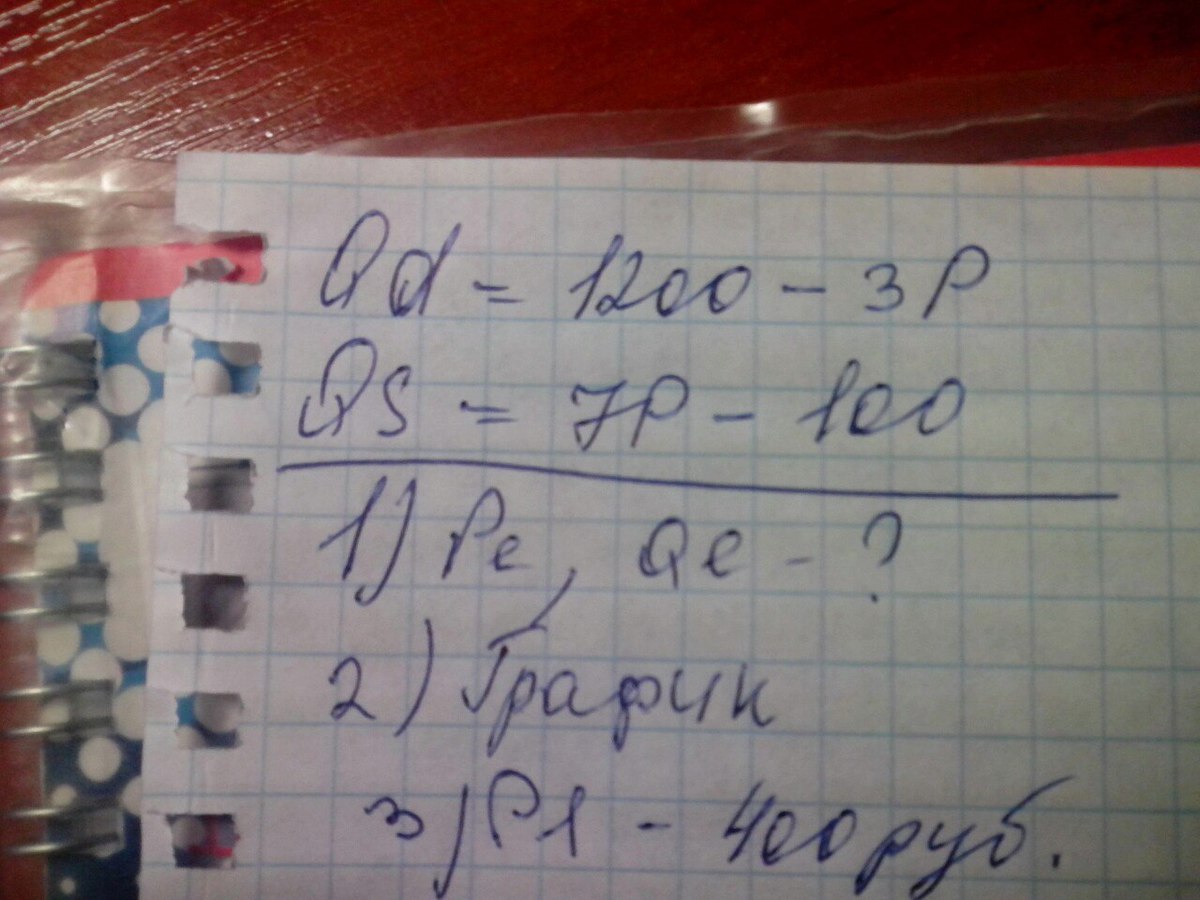 Qd = 1200 - 3P
QS = 7P - 100
1) Pe, Qe - ?
2) График
3) P1 - 400 руб.